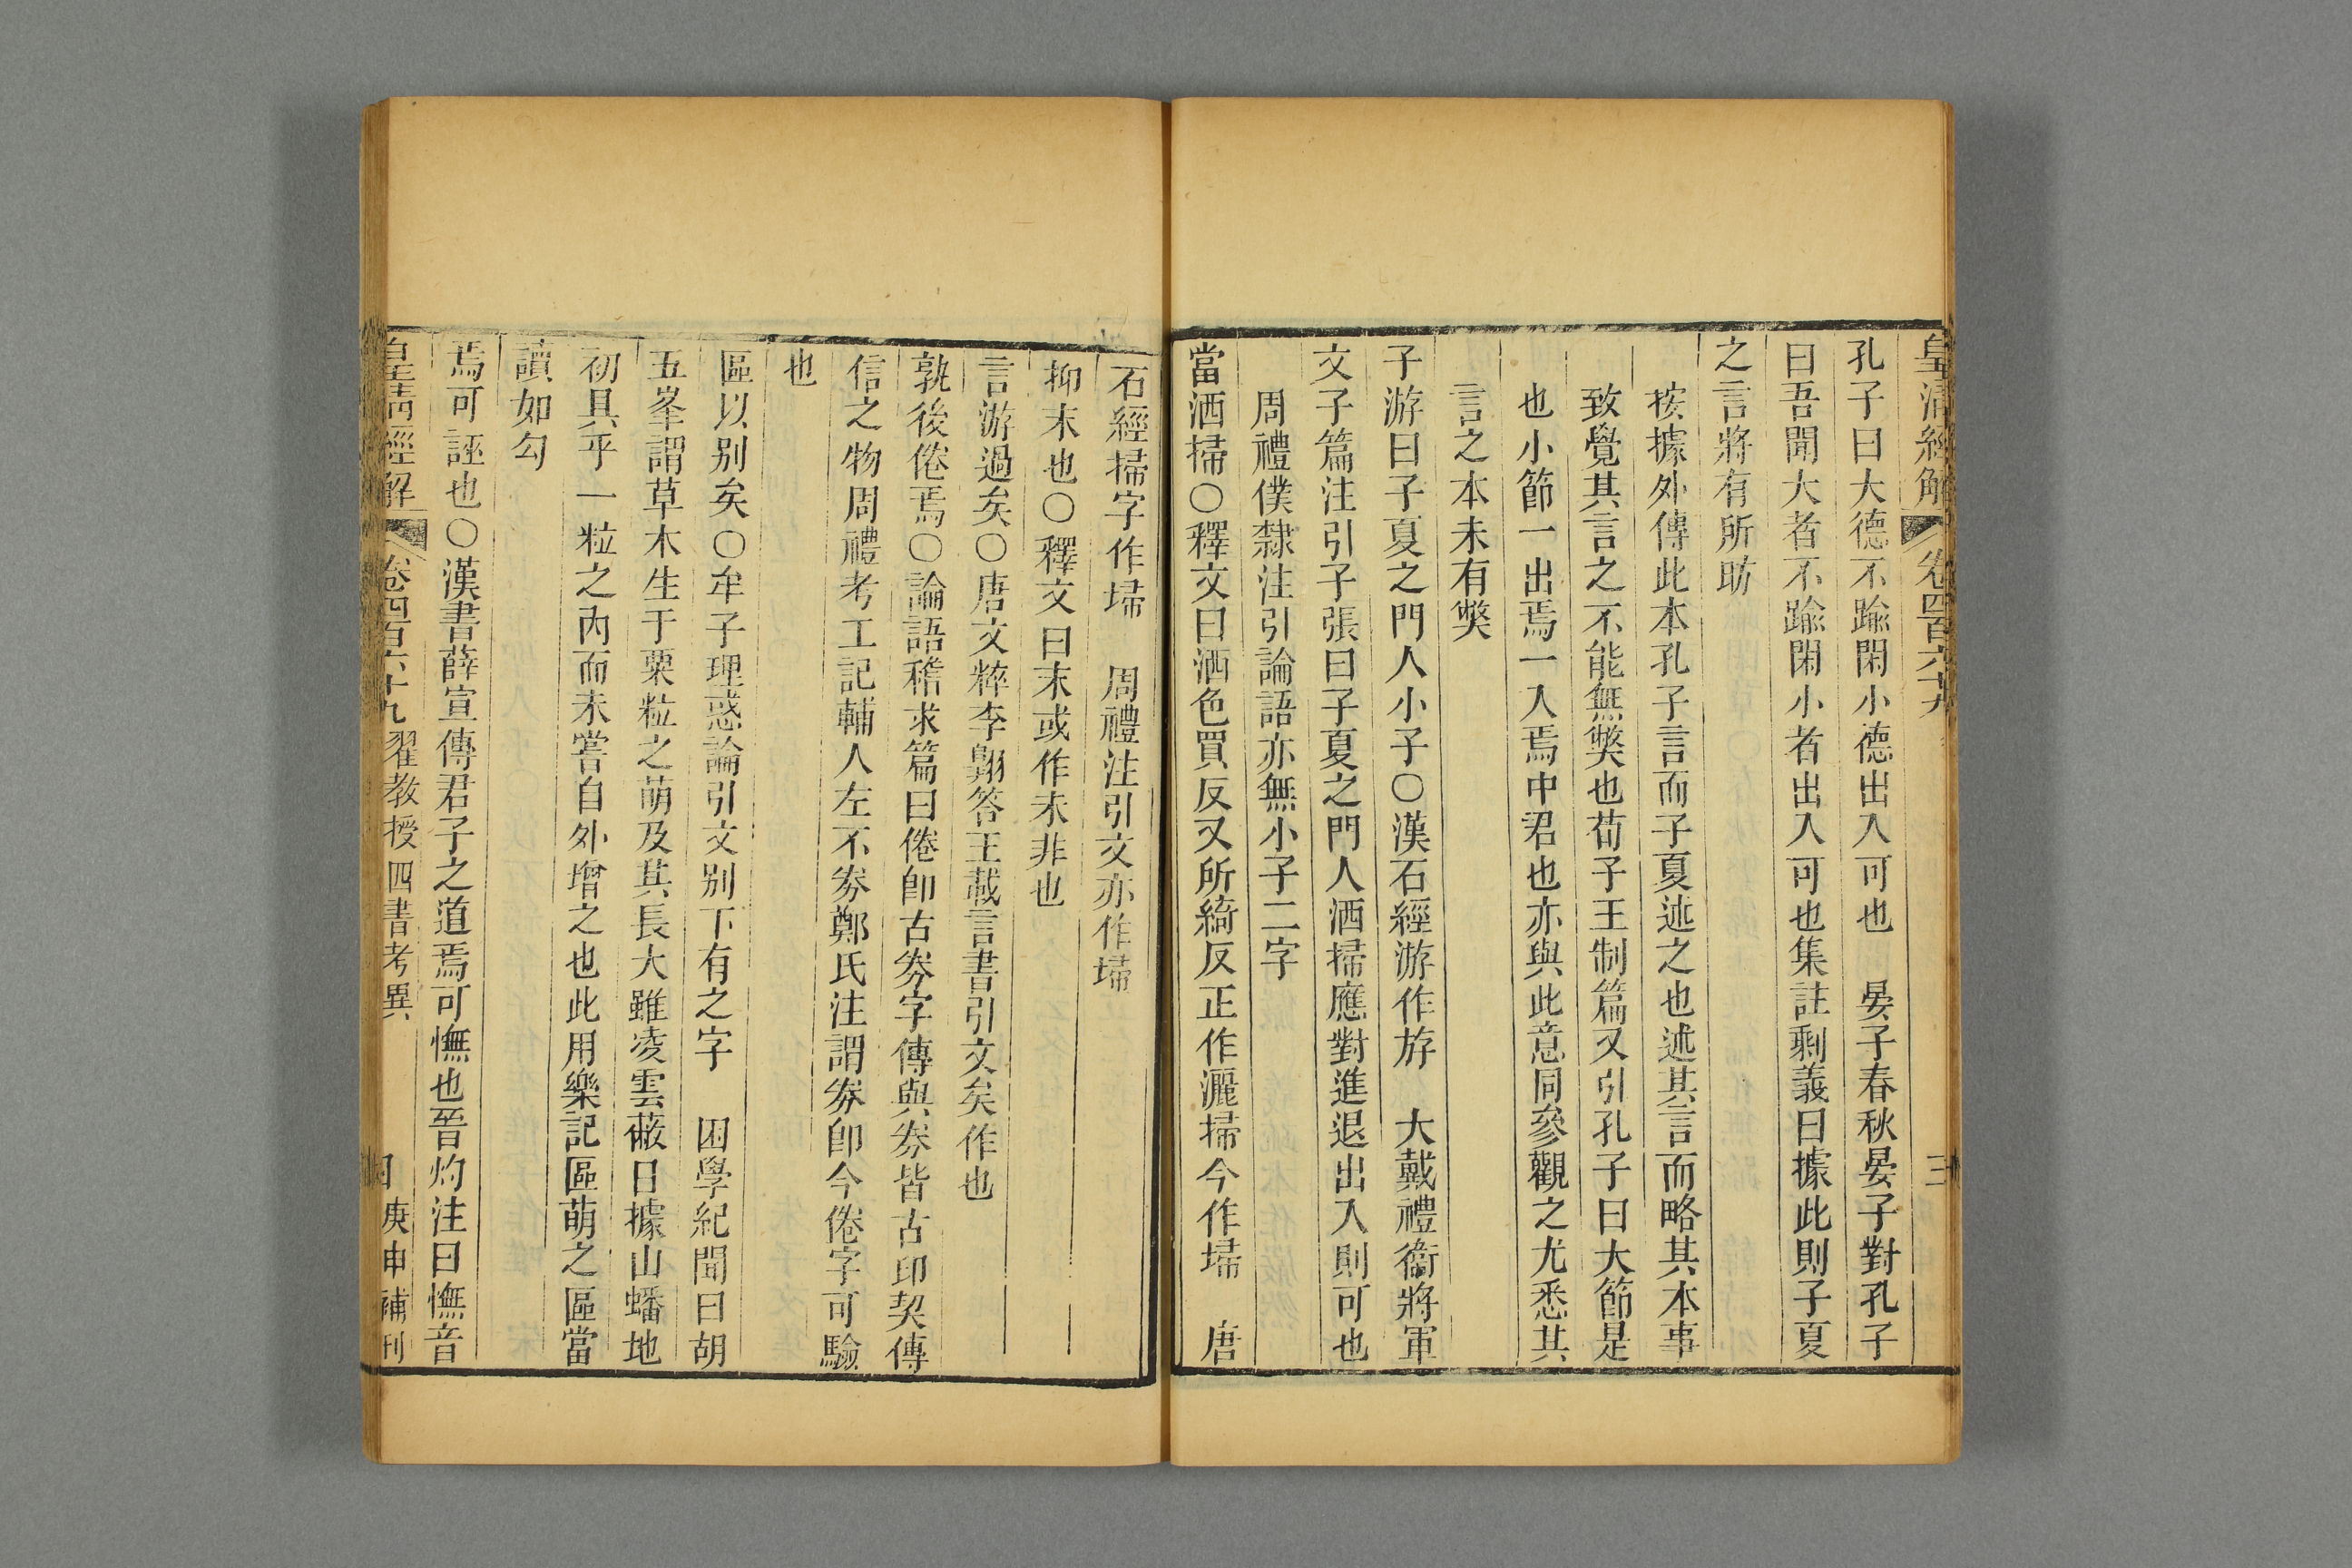 皇清經解 卷四百六十九 三
孔子曰大德不踰閑小德出入可也 晏子春秋晏子對孔子
曰吾聞大者不踰閑小者出入可也集註剩義曰據此則子夏
之言將有所昉
按據外傳此本孔子言而子夏述之也述其言而略其本事
致覺其言之不能無獘也荀子王制篇又引孔子曰大節是
也小節一出焉一入焉中君也亦與此意同參觀之尤悉其
言之本未有獘
子游曰子夏之門人小子○漢石經游作斿 大戴禮衞將軍
文子篇注引子張曰子夏之門人洒掃應對進退出入則可也
周禮僕隸注引論語亦無小子二字
當洒掃○釋文曰洒色買反又所綺反正作灑掃今作埽 唐
石經掃字作埽 周禮注引文亦作埽
抑末也○釋文曰末或作未非也
言游過矣○唐文粹李翺答王載言書引文矣作也
孰後倦焉○論語稽求篇曰倦卽古劵字傳與劵皆古印契傳
信之物周禮考工記輔人左不劵鄭氏注謂劵卽今倦字可驗
也
區以别矣○牟子理惑論引文别下有之字 困學紀聞曰胡
五峯謂草木生于粟粒之萌及其長大雖凌雲蔽日據山蟠地
初具乎一粒之內而未嘗自外增之也此用樂記區萌之區當
讀如勾
焉可誣也○漢書薛宣傳君子之道焉可憮也晉灼注曰憮音
皇清經解 卷四百六十九翟教授四書考異 四 庚申補刊